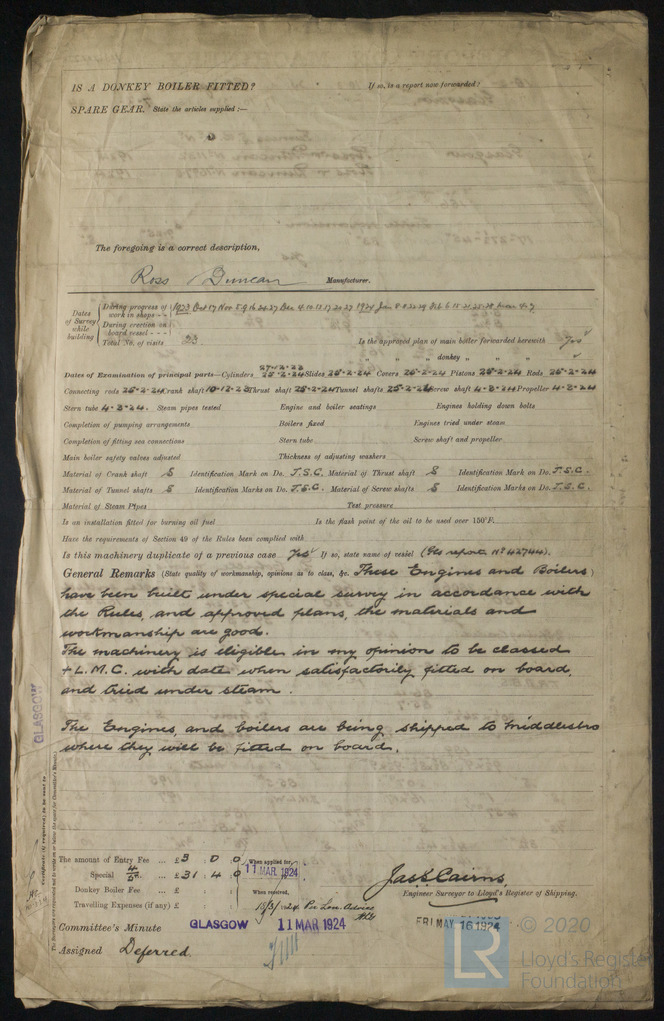 IS A DONKEY BOILER FITTED? If so, is a report now forwarded?
SPARE GEAR. State the articles supplied:—
The foregoing is a correct description,
Ross Duncan Manufacturer.
Dates of Survey while building
During progress of work in shops - - 1923 Oct 17 Nov 5 9 16 24 27 Dec 4 10 13 17 20 27 1924 Jan
During erection on board vessel - - -
Total No. of visits 23 Is the approved plan of main boiler forwarded herewith Yes
" " " donkey " " "
Dates of Examination of principal parts—Cylinders 27-2-23 25-2-24 Slides 26-2-24 Covers 26-2-24 Pistons 26-2-24 Rods 26-2-24
Connecting rods 26-2-24 Crank shaft 10-12-23 Thrust shaft 25-2-24 Tunnel shafts 25-2-24 Screw shaft 4-3-24 Propeller 4-3-24
Stern tube 4-3-24. Steam pipes tested Engine and boiler seatings Engines holding down bolts
Completion of pumping arrangements Boilers fixed Engines tried under steam
Completion of fitting sea connections Stern tube Screw shaft and propeller
Main boiler safety valves adjusted Thickness of adjusting washers
Material of Crank shaft S Identification Mark on Do. J.S.C. Material of Thrust shaft S Identification Mark on Do. J.S.C.
Material of Tunnel shafts S Identification Marks on Do. J.S.C. Material of Screw shafts S Identification Marks on Do. J.S.C.
Material of Steam Pipes Test pressure
Is an installation fitted for burning oil fuel Is the flash point of the oil to be used over 150°F.
Have the requirements of Section 49 of the Rules been complied with
Is this machinery duplicate of a previous case Yes If so, state name of vessel (Gls report No 42744).
General Remarks (State quality of workmanship, opinions as to class, &c. These Engines and Boilers)
have been built under special survey in accordance with
the Rules, and approved plans, the materials and
workmanship are good.
The machinery is eligible in my opinion to be classed
+ L.M.C. with date when satisfactorily fitted on board,
and tried under steam.
The Engines, and boilers are being shipped to Middlesbro
where they will be fitted on board.
GLASGOW
The amount of Entry Fee ... £ 3 : 0 : 0 When applied for,
Special 4/5 ... £ 31 : 4 : 0 11 MAR. 1924
Donkey Boiler Fee ... £ : : When received,
Travelling Expenses (if any) £ : : 15/3/1924
Jas. S. Cairns
Engineer Surveyor to Lloyd's Register of Shipping.
Committee's Minute GLASGOW 11 MAR 1924 FRI. MAY. 16 1924
Assigned Deferred.
LR © 2020
Lloyd's Register
Foundation